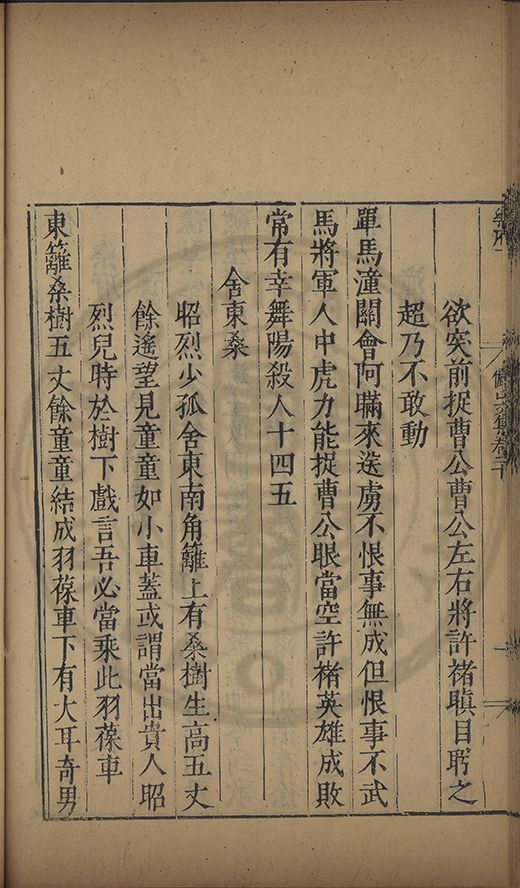 欲突前捉曹公曹公左右將許褚瞋目盻之
超乃不敢動
單馬潼關會阿瞞來送虜不恨事無成但恨事不武
馬將軍人中虎力能捉曹公眼當空許褚英雄成敗
常有幸舞陽殺人十四五
舍東桑
昭烈少孤舍東南角籬上有桑樹生高五丈
餘遙望見童童如小車蓋或謂當出貴人昭
烈兒時於樹下戲言吾必當乘此羽葆車
東籬桑樹五丈餘童童結成羽葆車下有大耳奇男